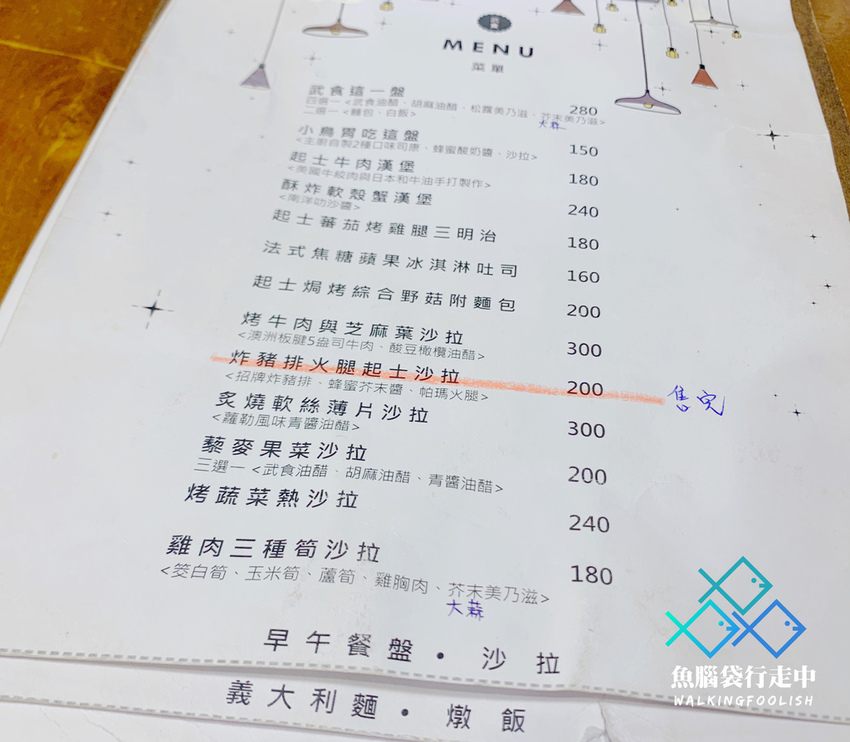 MENU
菜單
武食這一盤 280
四選一<武食油醋、胡麻油醋、松露美乃滋、芥末美乃滋>
大蒜
二選一<麵包、白飯>
小鳥胃吃這盤 150
<主廚自製2種口味司康、蜂蜜酸奶醬、沙拉>
起士牛肉漢堡 180
<美國牛絞肉與日本和牛油手打製作>
酥炸軟殼蟹漢堡 240
<南洋叻沙醬>
起士蕃茄烤雞腿三明治 180
法式焦糖蘋果冰淇淋吐司 160
起士焗烤綜合野菇附麵包 200
烤牛肉與芝麻葉沙拉 300
<澳洲板腱5盎司牛肉、酸豆橄欖油醋>
炸豬排火腿起士沙拉 200 售完
<招牌炸豬排、蜂蜜芥末醬、帕瑪火腿>
炙燒軟絲薄片沙拉 300
<蘿勒風味青醬油醋>
藜麥果菜沙拉 200
三選一<武食油醋、胡麻油醋、青醬油醋>
烤蔬菜熱沙拉 240
雞肉三種筍沙拉 180
<筊白筍、玉米筍、蘆筍、雞胸肉、芥末美乃滋>
大蒜
早午餐盤・沙拉
義大利麵・燉飯
魚腦袋行走中
WALKINGFOOLISH